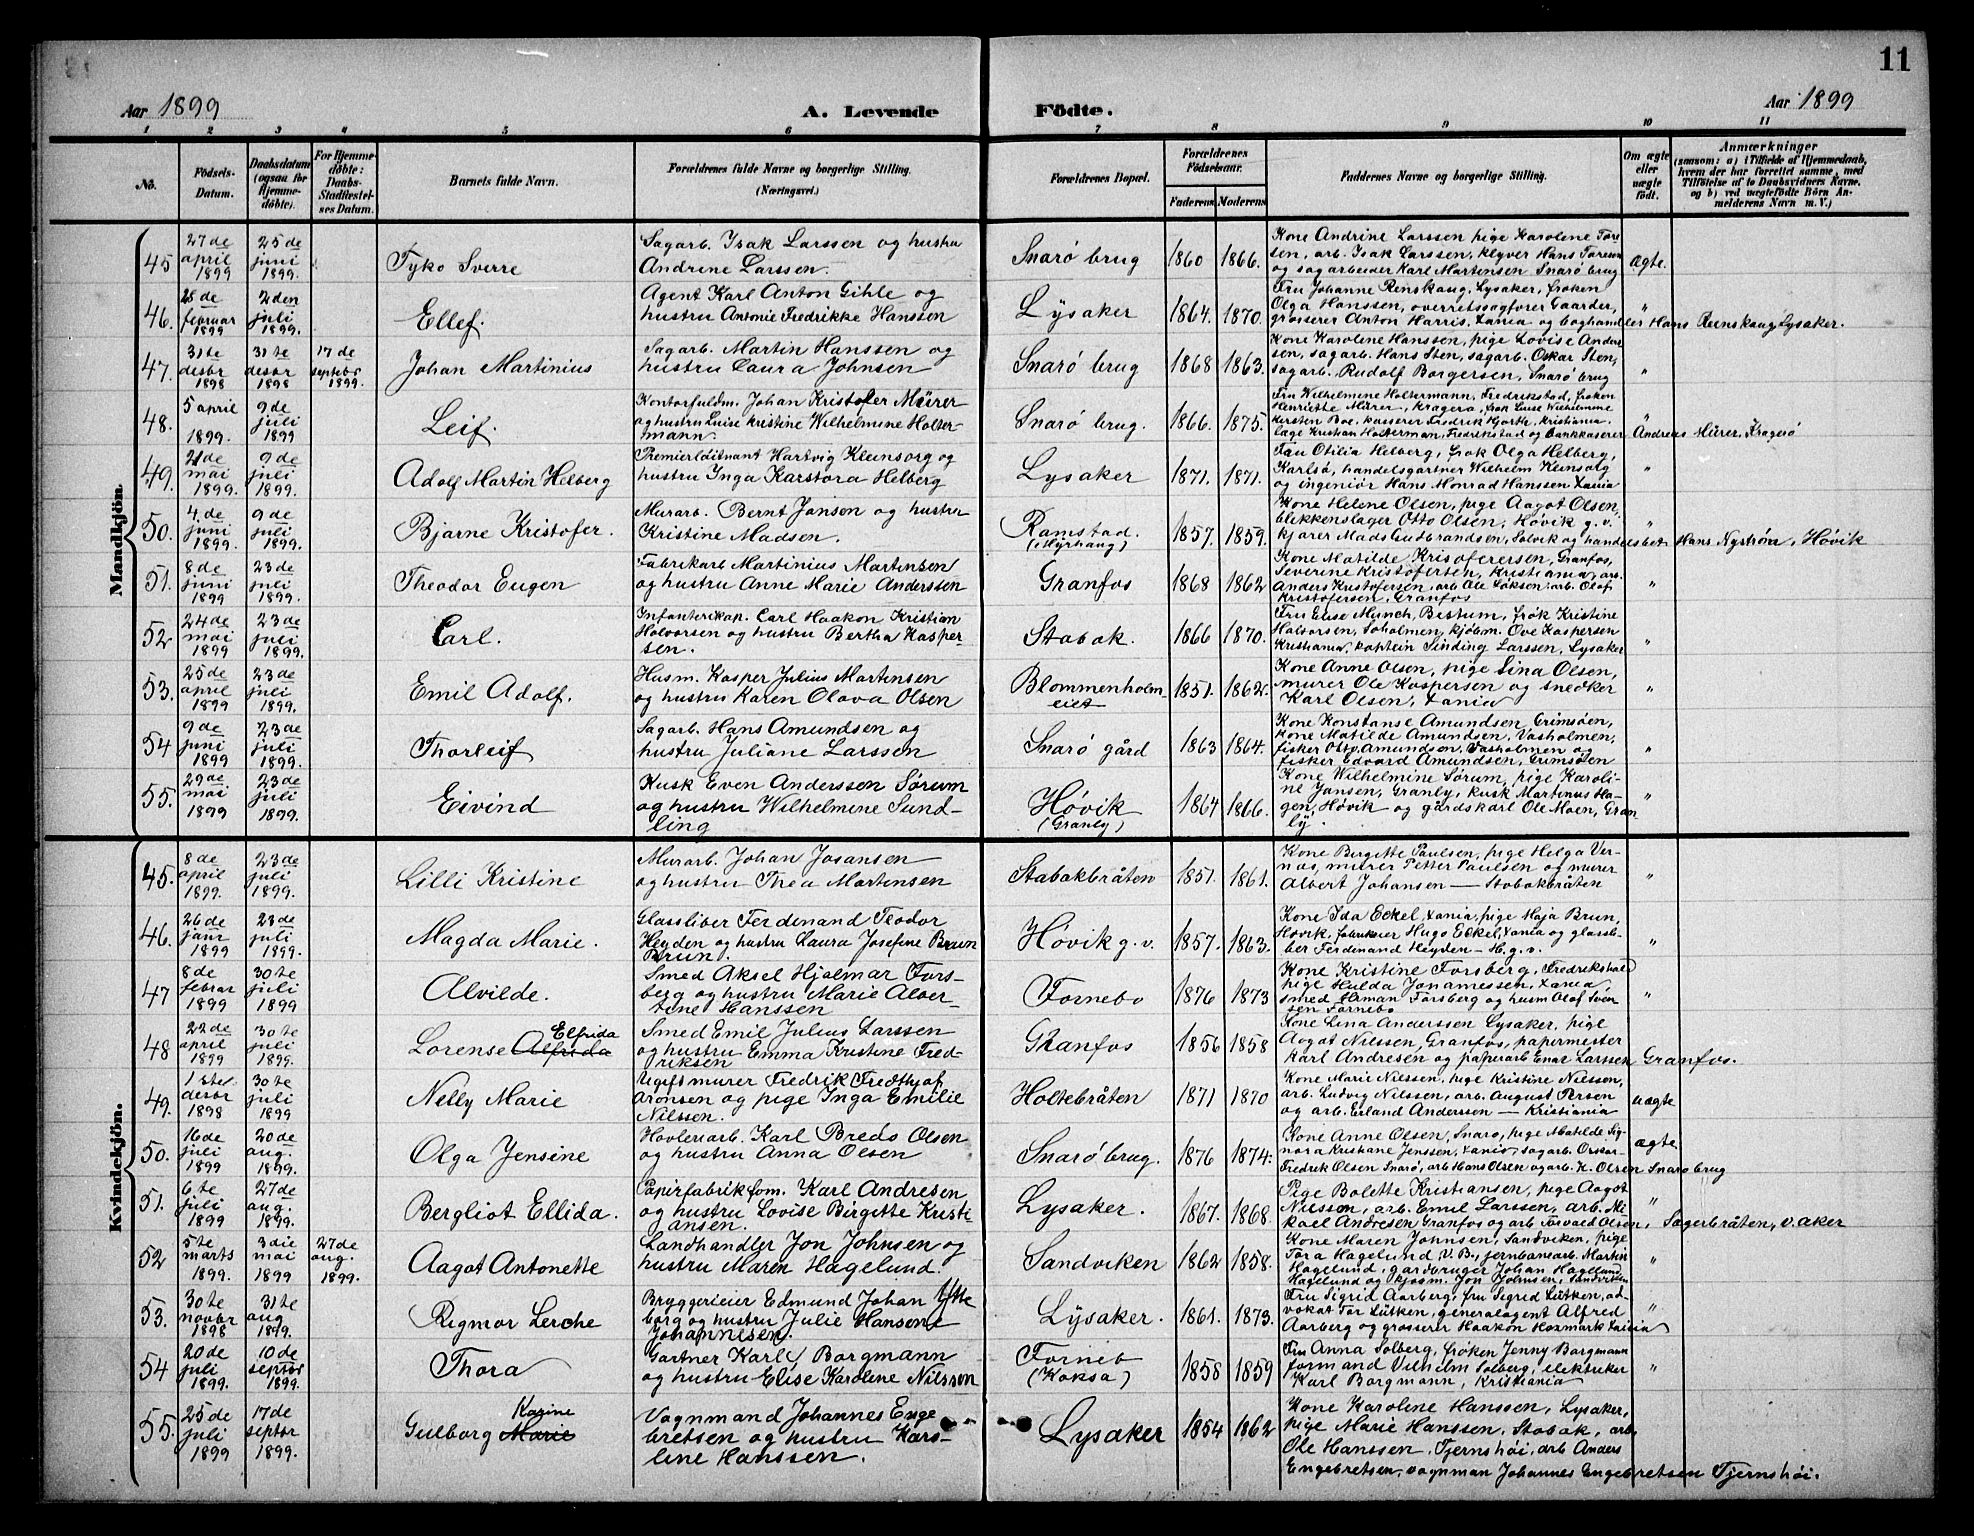 11
Aar 1899 A. Levende Födte. Aar 1899
1 2 3 4 5 6 7 8 9 10 11
No. Födsels-Datum. Daabsdatum (ogsaa for Hjemme-döbte). For Hjemme-döbte: Daabs-Stadfæstel-ses Datum. Barnets fulde Navn. Forældrenes fulde Navne og borgerlige Stilling. (Næringsvei.) Forældrenes Bopæl. Forældrenes Födselsaar. Faderens Moderens Faddernes Navne og borgerlige Stilling. Om ægte eller uægte födt. Anmærkninger (saasom: a) i Tilfælde af Hjemmedaab, hvem der har forrettet samme, med Tilföielse af to Daabsvidners Navne, og b) ved uægtefödte Börn An-melderens Navn m. V.)
Mandkjön.
45 27de april 1899 25de juni 1899. Tyko Sverre Sagarb. Isak Larssen og hustru Andrine Larssen. Snarö brug 1860 1866. Kone Andrine Larssen, pige Karolene Tore-sen, arb. Isak Larssen, klyver Hans Toresen og sagarbeider Karl Martensen Snarö brug ægte.
46. 28de februar 1899 2den juli 1899. Ellef. Agent Karl Anton Gihle og hustru Antonie Fredrikke Hanssen Lysaker 1864. 1870. Fru Johanne Renskaug, Lysaker, frøken Olga Hanssen, overretssagfører Gaarder, grosserer Anton Harris, Xania og boghandler Hans Renskaug, Lysaker. "
47. 31te desbr 1898 31te desbr 1898 17de septebr 1899. Johan Martinius Sagarb. Martin Hanssen og hustru Laura Johnsen Snarö brug 1868 1863. Kone Karolene Hanssen, pige Lovise Ander-sen, sagarb. Hans Sten, sagarb. Oskar Sten, sagarb. Rudolf Borgersen, Snarö brug "
48. 5 april 1899. 9de juli 1899 Leif. Kontorfuldm. Johan Kristofer Mürer og hustru Luise Kristine Wilhelmine Holter-mann. Snarö brug. 1866. 1875. Fru Wilhelmene Holtermann, Fredrikstad, frøken Henriette Mürer, Kragerø, frøk Luise Wilhelmine Kersten Boe, kasserer Fredrik Hjorth, Kristiania. læge Kristian Holterman, Fredrikstad og bankkasserer Andreas Mürer, Kragerø "
49. 21de mai 1899. 9de juli 1899. Adolf Martin Helberg Premierløitnant Hartvig Kleinsorg og hustru Inga Karstora Helberg Lysaker 1871. 1871. Fru Otilia Helberg, frøk Olga Helberg, Karlsö, handelsgartner Wilhelm Kleinsorg og ingeniör Hans Monrad Hanssen Xania "
50. 4de juni 1899. 9de juli 1899. Bjarne Kristofer. Murarb. Bernt Janson og hustru Kristine Madsen. Ramstad. (Myrhaug) 1857. 1859. Kone Helene Olsen, pige Aagot Olsen, blikkenslager Otto Olsen, Høvik g.v. kjører Mads Gulbrandsen, Solvik og handelsbet. Hans Nystrøm, Høvik "
51. 8de juni 1899 23de juli 1899. Theodor Eugen Fabrikarb Martinius Martensen og hustru Anne Marie Anderssen Granfos 1868 1862 Kone Matilde Kristoferersen, Granfos, Severine Kristofersen, Kristiania, arb. Anders Kristofersen, arb Ole Løksen, arb. Olaf Kristofersen, Granfos "
52 24de mai 1899 23de juli 1899. Carl. Infanterikap. Carl Haakon Kristian Halvorsen og hustru Bertha Kasper-sen. Stabak. 1866 1870. Fru Elise Munch, Bestum, frøk Kristine Halvorsen, Soholmen, kjøbm. Ove Kaspersen Kristiania, kaptein Sinding Larssen, Lysaker "
53. 25de april 1899 23de juli 1899. Emil Adolf. Husm. Kasper Julius Martensen og hustru Karen Olava Olsen Blommenholm-eiet 1851. 1862. Kone Anne Olsen, pige Lina Olsen, murer Ole Kaspersen og snedker Karl Olsen, Xania "
54 9de juni 1899 23de juli 1899. Thorleif Sagarb. Hans Amundsen og hustru Juliane Larssen Snarö gård 1863 1864. Kone Konstanse Amundsen, Grimsöen, kone Matilde Amundsen, Vasholmen, fisker Otto Amundsen, Vasholmen og fisker Edvard Amundsen, Grimsöen "
55. 29de mai 1899 23de juli 1899. Eivind Kusk Even Anderssen Sørum og hustru Wilhelmine Sund-ling Høvik (Granly) 1864 1866. Kone Wilhelmine Sørum, pige Karoli-ne Jansen, Granly, kusk Martinus Ha-gen, Høvik og gårdskarl Ole Moen, Gran-ly. "
Kvindekjön.
45. 8de april 1899. 23de juli 1899. Lilli Kristine Murarb. Johan Josansen og hustru Thea Martensen Stabakbråten 1851. 1861. Kone Birgitte Paulsen, pige Helga Ver-nas, murer Petter Paulsen og murer Albert Johansen — Stabakbråten "
46. 26de janr 1899 23de juli 1899 Magda Marie. Glassliber Ferdenand Teodor Heyden og hustru Laura Josefine Brun Brun. Høvik g.v. 1857. 1863. Kone Ida Eckel, Xania, pige Maja Brun, Høvik, fabrikeier Hugo Eckel, Xania og glassli-ber Ferdinand Heyden — H.g.v. "
47 8de febrar 1899 30te juli 1899 Alvilde. Smed Aksel Hjalmar Fors-berg og hustru Marie Alver-tine Hanssen Fornebo 1876 1873 Kone Kristine Forsberg, Fredrikshald pige Hulda Johannessen, Xania, smed Herman Forsberg og husm Olaf Sven-sen Fornebo "
48 22de april 1899 30te juli 1899. Lorense Alfrida Elfrida Smed Emil Julius Larssen og hustru Emma Kristine Fred-riksen Granfos 1856 1858 Kone Lina Anderssen Lysaker, pige Aagot Nilssen, Granfos, papermester Karl Andresen og paperarb Enar Larssen Granfos.
49. 1ste desbr 1898 30te juli 1899 Nelly Marie Ugift murer Fredrik Fredthjof Aronsen og pige Inga Emilie Nilssen. Holtebråten 1871 1870 Kone Marie Nilssen, pige Kristine Nilssen, arb. Ludvig Nilssen, arb. August Persen og arb. Erland Anderssen — Kristiania uægte
50. 16de juli 1899 20de aug. 1899. Olga Jensine Høvleriarb. Karl Breds Olsen og hustru Anna Olsen Snarö brug. 1876 1874. Kone Anne Olsen, Snarø, pige Matilde Sig-nora Kristiane Jenssen, Xania, sagarb. Oskar Fredrik Olsen Snarö, arb Hans Olsen og arb. K. Olsen Snarö brug ægte
51. 6te juli 1899 27de aug. 1899. Bergliot Ellida. Papirfabrikfom. Karl Andresen og hustru Lovise Birgitte Kristi-ansen. Lysaker. 1867. 1868. Pige Bolette Kristiansen, pige Aagot Nilsson, arb. Emil Larssen, arb. Mi-kael Andresen Granfos og arb Torvald Olsen, Sagerbråten, v. aker "
52 5te marts 1899. 3die mai 1899 27de aug. 1899. Aagot Antonette Landhandler Jon Johnsen og hustru Maren Hagelund. Sandviken 1862 1858. Kone Maren Johnsen, Sandviken, pige Tora Hagelund V.B., jernbanearb. Martin Hagelund, gardbruger Johan Hagelund Hagelund og kjøbm. Jon Johnsen, Sandviken "
53. 30te novbr 1898 31te aug 1899. Rigmor Lerche Bryggerieier Edmund Johan Ytte borg og hustru Julie Hansene Johannesen. Lysaker. 1861. 1873. Fru Sigrid Aarberg, fru Sigred Lütken, ad-vokat Tor Lütken, generalagent Alfred Aarberg og grosserer Haakon Hoxmark Xania "
54 20de juli 1899. 10de septbr 1899. Thora Gartner Karl Borgmann og hustru Elise Karolene Nilsson Fornebo (Koksa) 1858 1859 Fru Anna Solberg, frøken Jenny Borgmann formand Vilhelm Solberg, elektriker Karl Borgmann, Kristiania "
55. 25de juli 1899 17de septbr 1899. Gulborg Marie Karine Vognmand Johannes Enge bretsen og hustru Karo-line Hanssen. Lysaker 1854 1862 Kone Karolene Hanssen, Lysaker, pige Marie Hanssen, Stabak, arb. Ole Hanssen, Tjernshøi, arb Anders Engebretsen, vognman Johannes Engebretsen Tjernshøi.